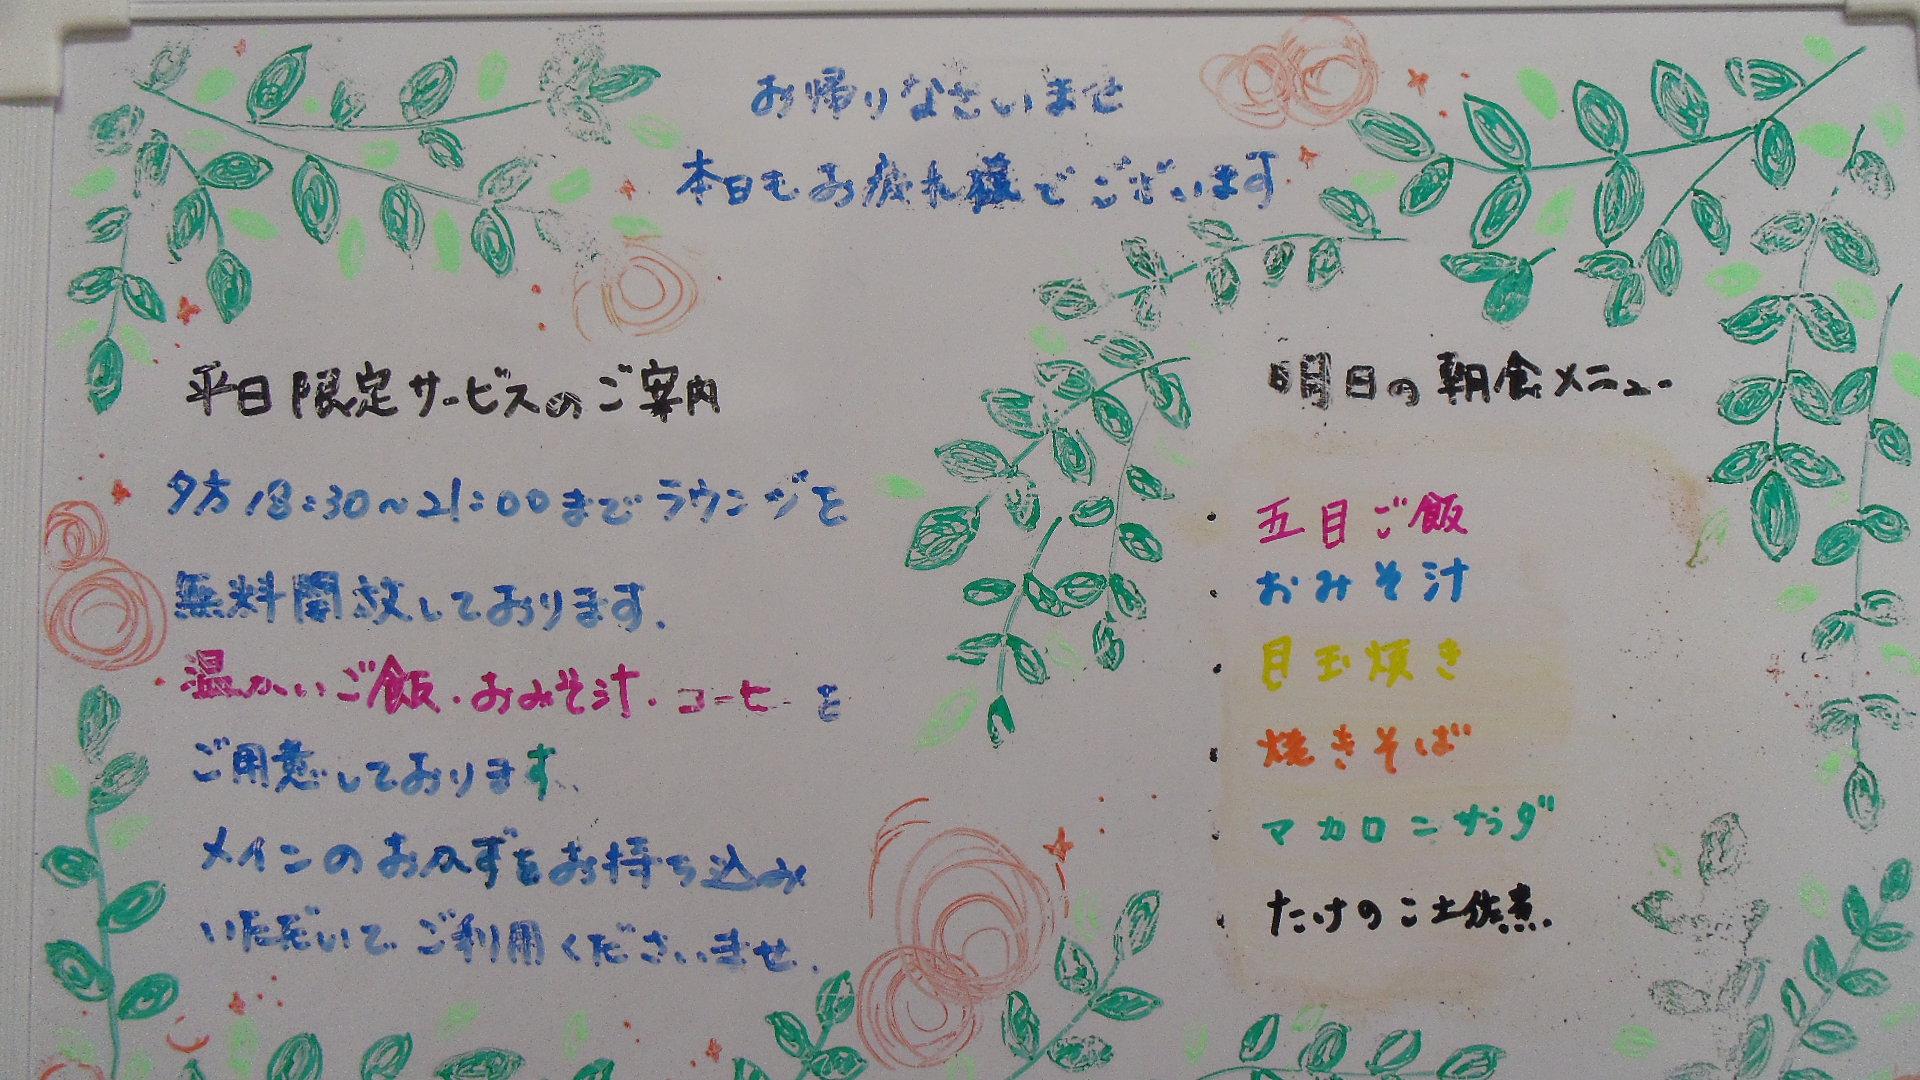 お帰りなさいませ
本日もお疲れ様でございます
平日限定サービスのご案内
夕方18:30～21:00までラウンジを
無料開放しております。
温かいご飯・おみそ汁・コーヒーを
ご用意しております。
メインのおかずをお持ち込み
いただいてご利用くださいませ。
明日の朝食メニュー
・五目ご飯
・おみそ汁
・目玉焼き
・焼きそば
・マカロニサラダ
・たけのこ土佐煮